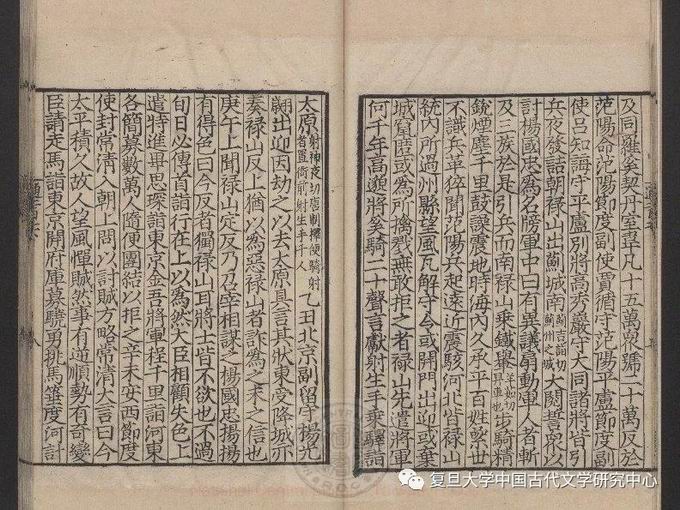 及同羅奚契丹室韋凡十五萬衆號二十萬反於
范陽命范陽節度副使賈循守范陽平盧節度副
使呂知誨守平盧別將高秀巖守大同諸將皆引
兵夜發詰朝祿山出薊城南薊州之城大閱誓衆以
計楊國忠為名牓軍中曰有異議扇動軍人者斬
及三族於是引兵而南祿山乘鐵轝羊茹切車也步騎精
銳煙塵千里鼓譟震地時海內久承平百姓累世
不識兵革猝聞范陽兵起遠近震駭河北皆祿山
統內所過州縣望風瓦解守令或開門出迎或棄
城竄匿或為所擒戮無敢拒之者祿山先遣將軍
何千年高邈將奚騎二十聲言獻射生手乘驛詣
太原射神夜切唐制擇便騎射者置衙前射生手千人乙丑北京副留守楊光
翽出迎因劫之以去太原具言其狀東受降城亦
奏祿山反上猶以為惡祿山者詐為之未之信也
庚午上聞祿山定反乃召宰相謀之楊國忠揚揚
有得色曰今反者獨祿山耳將士皆不欲也不過
旬日必傳首詣行在上以為然大臣相顧失色上
遣特進畢思琛詣東京金吾將軍程千里詣河東
各簡募數萬人隨便團結以拒之辛未安西節度
使封常清入朝上問以討賊方略常清大言曰今
太平積久故人望風憚賊然事有逆順勢有奇變
臣請走馬詣東京開府庫募驍勇挑馬箠度河計
復旦大学中国古代文学研究中心